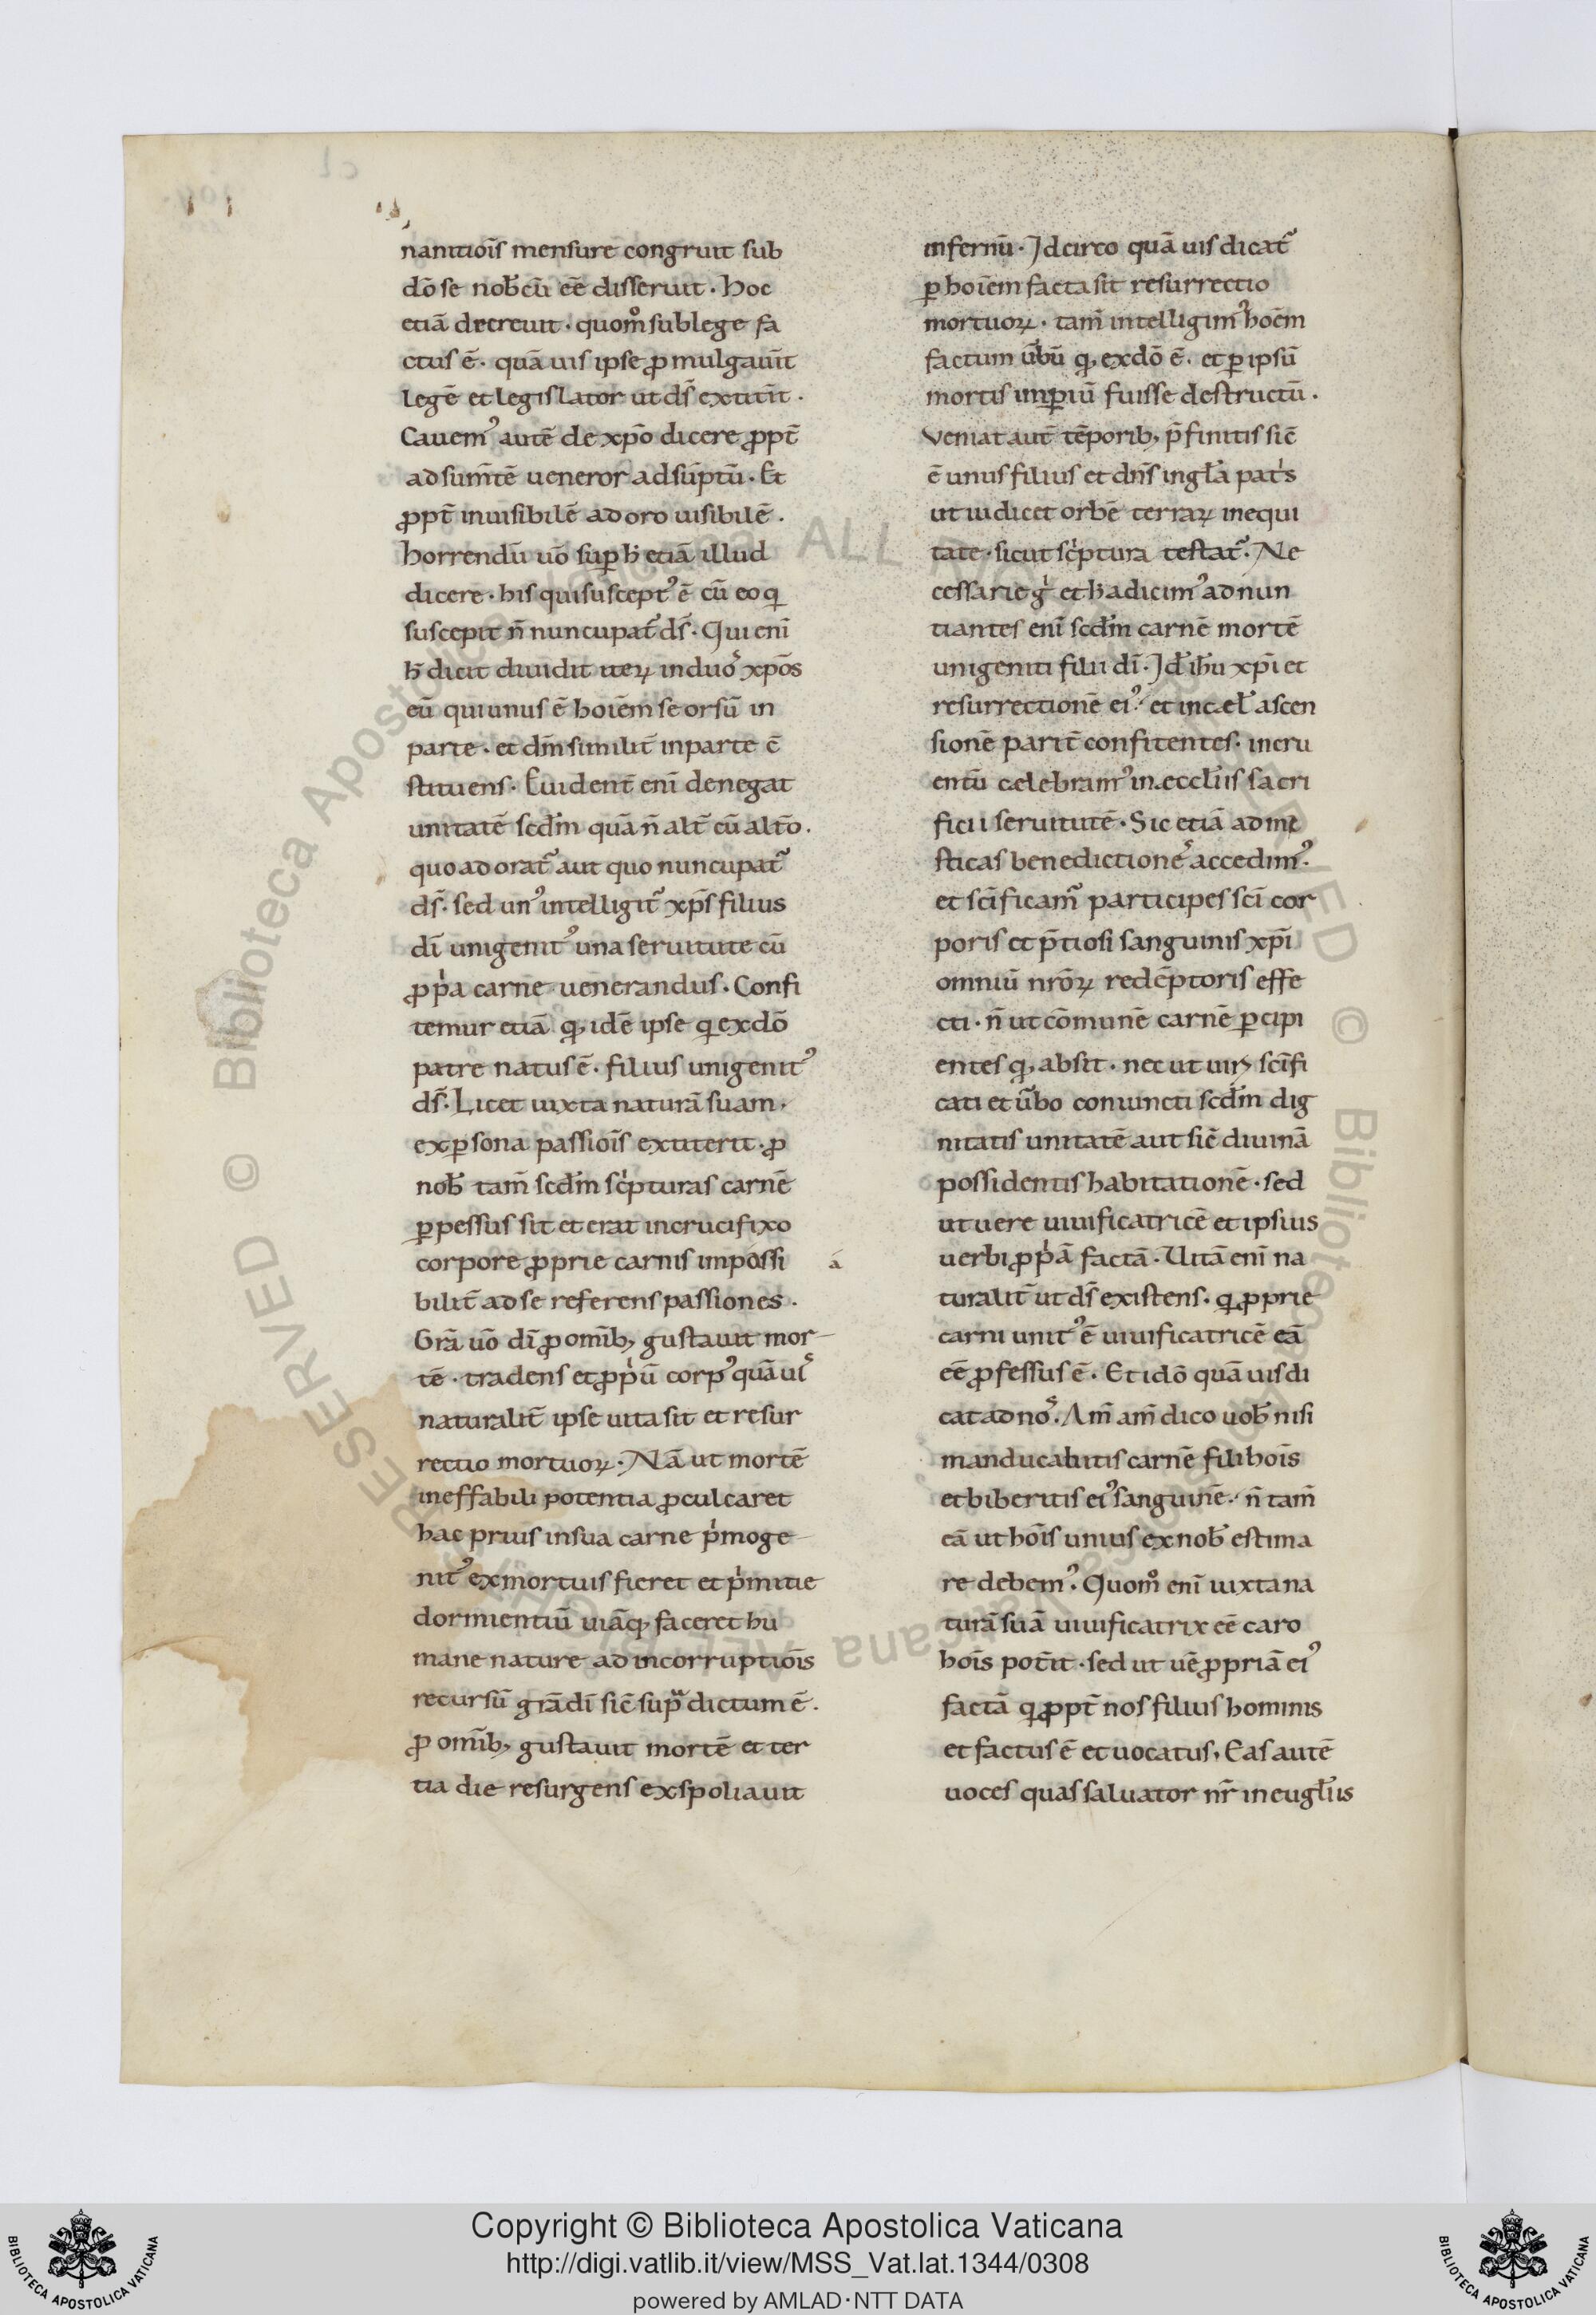 nanitiois mensure congruit sub
dō se nob̄ cū eē disseruit · hoc
etiā decreuit · quom̊ sub lege fa
ctus ē · quāuis ipse ꝓmulgauit̄
legē et legislator ut ds̄ extitit̄ ·
Cauemꝰ autē de xp̄o dicere ꝓpt̄
adsum̄tē ueneror adsūptū · Et
ꝓpt̄ inuisibilē adoro uisibilē ·
horrendū uō suꝑ h̵ etiā illud
dicere · his qui susceptꝰ ē cū eo q
suscepit n̄ nuncupat᷑ ds̄ · Qui enī
h̵ dicit diuidit iteꝝ in duos xp̄os
eū qui unus ē hoiēm seorsū in
parte · et dm̄ similit̄ in parte cē
stituens · Euident̄ enī denegat
unitatē scdm̄ quā n̄ alt̄ cū alt̄o ·
quo adorat᷑ aut quo nuncupat᷑
ds̄ · sed unꝰ intelligit᷑ xp̄s filius
dī unigenitꝰ una seruitute cū
ꝓpͥa carne uenerandus · Confi
temur etiā q, idē ipse q ex dō
patre natus ē · filius unigenitꝰ
ds̄ · Licet iuxta naturā suam ·
exꝑsona passiois̄ extiterit · ꝓ
nob̄ tam̄ scdm̄ scͥpturas carnē
ꝑpessus sit et erat in crucifixo
corpore ꝓprie carnis impossi
á
bilit̄ ad se referens passiones ·
Grā uō dī ꝓ omīb, gustauit mor
tē · tradens et ꝓpͥū corpꝰ quāuis
naturalit̄ ipse uita sit et resur
rectio mortuoꝝ · Nā ut mortē
ineffabili potentia ꝓculcaret
hac prius in sua carne pͥmoge
nitꝰ ex mortuis fieret et pͥmitie
dormientiū uiāq, faceret hu
mane nature ad incorruptiois̄
recursū grā dī sic̄ supᷓ dictum ē ·
ꝓ omīb, gustauit mortē et ter
tia die resurgens exspoliauit
infernū · Idcirco quāuis dicat᷑
ꝑ hoiēm facta sit resurrectio
mortuoꝝ · tam̄ intelligimꝰ hoēm
factum ūbū q, ex dō ē · et ꝑ ipsū
mortis imꝑiū fuisse destructū ·
Veniat aut̄ tēporib, p̄finitis sic̄
ē unus filius et dn̄s in gl̄a patͥs
ut iudicet orbē terraꝝ in equi
tate · sicut scͥptura testat᷑ · Ne
cessarie gͥ et h̵ adicimꝰ adnun
tiantes enī scdm̄ carnē mortē
unigeniti filii dī · Id̄ ih̄u xp̄i et
resurrectionē eiꝰ · et in cęl̄ ascen
sionē parit̄ confitentes · incru
entū celebramꝰ in ęccl̄iis sacri
ficii seruitutē · Sic etiā ad mi
sticas benedictiones accedimꝰ ·
et sc̄ificam᷑ participes sc̄i cor
poris et p̄tiosi sanguinis xp̄i
omniū nrōꝝ redēptoris effe
cti · n̄ ut cōmunē carnē ꝑcipi
entes q, absit · nec ut uiri sc̄ifi
cati et ūbo coniuncti scdm̄ dig
nitatis unitatē aut sic̄ diuinā
possidentis habitationē · sed
ut uere uiuificatricē et ipsius
uerbi ꝓpͥā factā · Uitā enī na
turalit̄ ut ds̄ existens · q ꝓprie
carni unitꝰ ē uiuificatricē eā
eē ꝓfessus ē · Et idō quāuis di
cat ad nos · Am̄ am̄ dico uob̄ nisi
manducabitis carnē fili hois̄
et biberitis eiꝰ sanguinē · n̄ tam̄
eā ut hois̄ unius ex nob̄ estima
re debemꝰ · Quom̊ enī iuxta na
turā suā uiuificatrix eē caro
hois̄ pot̄it · sed ut uē ꝓpriā eiꝰ
factā q ꝓpt̄ nos filius hominis
et factus ē et uocatus · Eas autē
uoces quas saluator nr̄ in eugl̄iis
Copyright © Biblioteca Apostolica Vaticana
http://digi.vatlib.it/view/MSS_Vat.lat.1344/0308
powered by AMLAD·NTT DATA